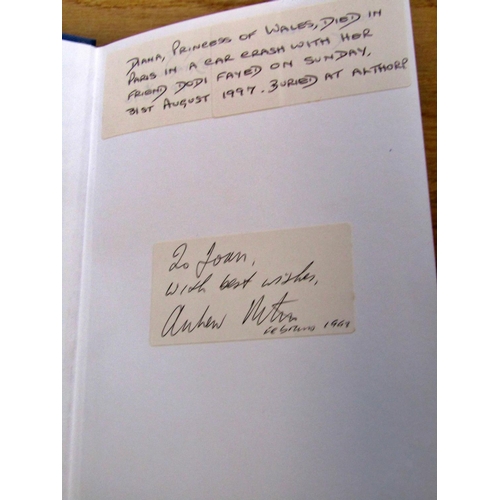 DIANA, PRINCESS OF WALES, DIED IN
PARIS IN A CAR CRASH WITH HER
FRIEND DODI FAYED ON SUNDAY,
31ST AUGUST 1997. BURIED AT ALTHORP
To Joan,
with best wishes,
Andrew